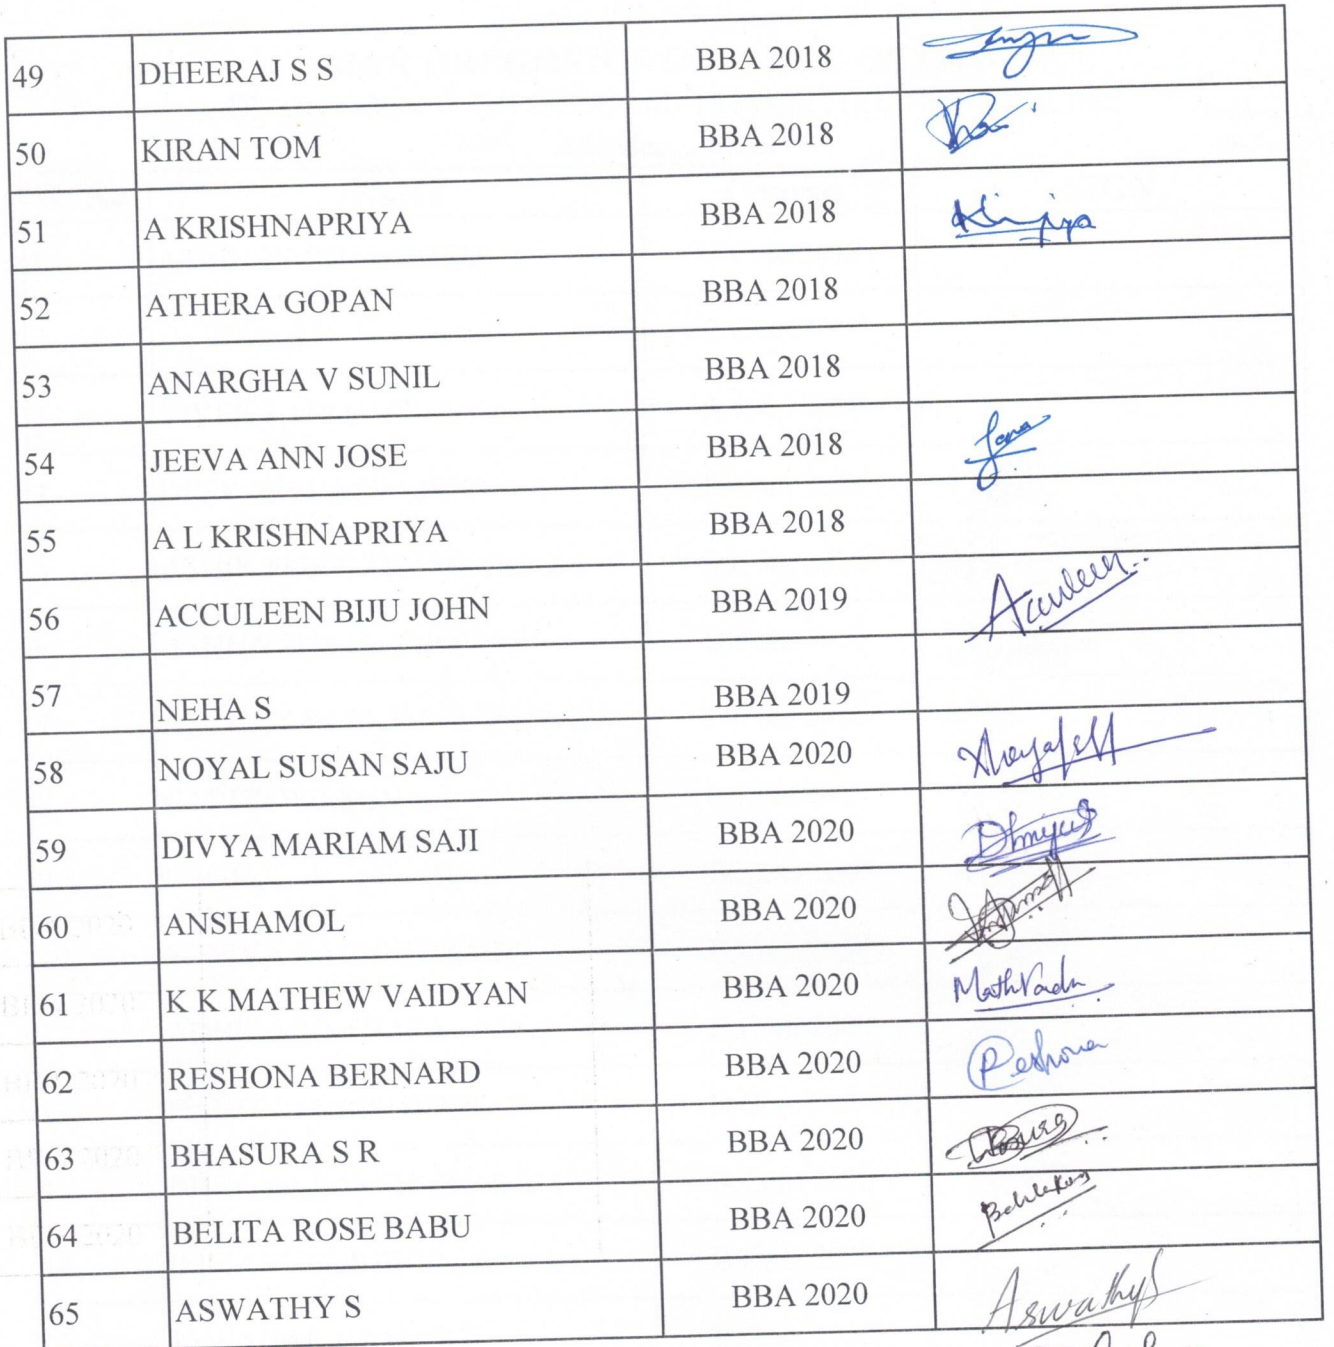 49 DHEERAJ S S BBA 2018
50 KIRAN TOM BBA 2018
51 A KRISHNAPRIYA BBA 2018
52 ATHERA GOPAN BBA 2018
53 ANARGHA V SUNIL BBA 2018
54 JEEVA ANN JOSE BBA 2018
55 A L KRISHNAPRIYA BBA 2018
56 ACCULEEN BIJU JOHN BBA 2019 Acculeen
57 NEHA S BBA 2019
58 NOYAL SUSAN SAJU BBA 2020
59 DIVYA MARIAM SAJI BBA 2020
60 ANSHAMOL BBA 2020
61 K K MATHEW VAIDYAN BBA 2020
62 RESHONA BERNARD BBA 2020 Reshona
63 BHASURA S R BBA 2020
64 BELITA ROSE BABU BBA 2020
65 ASWATHY S BBA 2020 Aswathy S